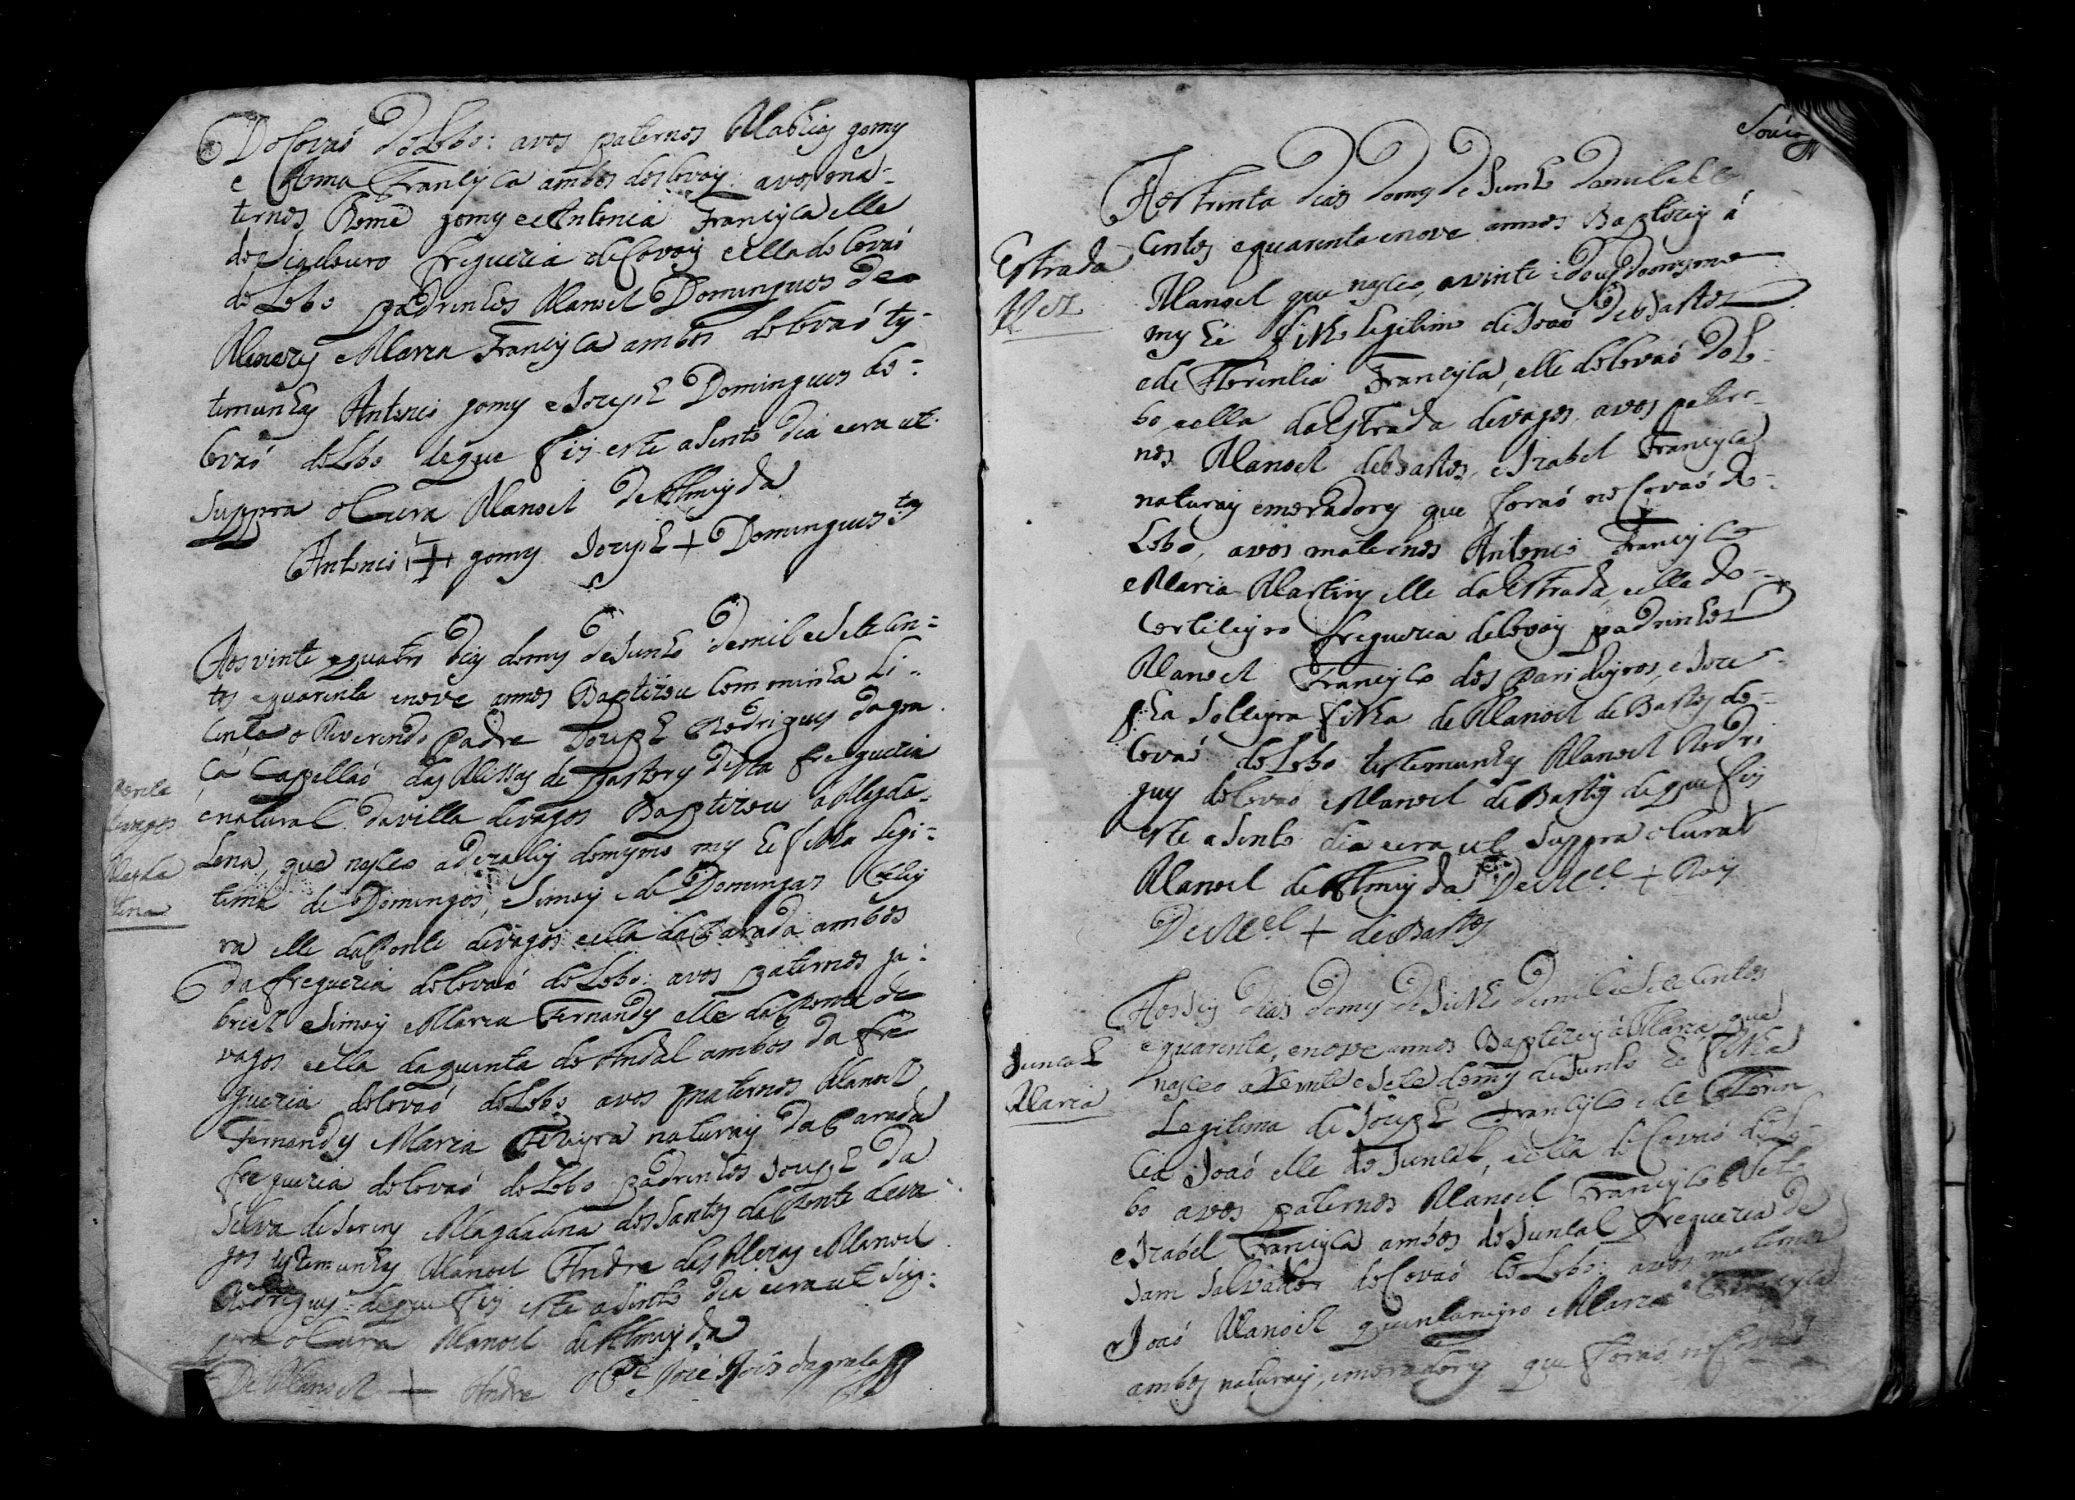 Do Covaó do Lobo: avos paternos Mathias gomy
e Anna Francyca ambos dos Covoiz: avos ma-
ternos Rome gomy e Antonia Francyca elle
do freguezia de Covoiz e ella do Covaó
do Lobo padrinhos Manoel Domingues de
e Maria Francyca ambos do Covaó ty-
temunhas Antonio gomy e Jozeph Domingues do-
Covaó do Lobo de que fis este asento dia e era ut
Suppra o Cura Manoel de Almeyda
Antonio + gomy Jozeph + Domingues
Aos vinte e quatro dias do mes de Junho de mil e sete cen-
tos e quarenta e nove annos Baptizou com minha li-
cença o Reverendo Padre Jozeph Rodrigues da gra
ça Capellaó das Missas de desta freguezia
e natural da villa de vagos Baptizou a Magda-
Lena, que nasceo a do mesmo mes he filha legi-
tima de Domingos Simoiz e de Domingas
ra elle da Ponte de vagos e ella da Parada ambos
da freguezia do Covaó do Lobo: avos paternos ga-
briel Simoiz e Maria Fernandes elle da Ponte de
vagos e ella da quinta do ambos da fre
guezia do Covaó do Lobo avos maternos Manoel
Fernandes e Maria naturais da Parada
freguezia do Covaó do Lobo padrinhos Jozeph da
Silva de e Magdalena dos Santos da Ponte de va
gos testemunhas Manoel Andre das e Manoel
Rodrigues: de que fis este asento dia e era ut sup-
pra o Cura Manoel de Almeyda
De Manoel + Andre o Pe Jozé Roiz da graça
Ponte
de vagos
Magda
Lena
Aos trinta dias do mes de Junho de mil e sete
centos e quarenta e nove annos Baptizey á
Manoel que nasceo, a vinte e dous do mesmo
mes he filho legitimo de Joaó de Bastos
e de Florencia Francyca, elle do Covaó do Lo-
bo e ella da Estrada de vagos, avos pater-
nos Manoel de Bastos e Izabel Francyca
naturais e moradores que foraó no Covaó do-
Lobo, avos maternos Antonio Francyco
e Maria Martins elle da Estrada e ella do-
freguezia de Covoiz padrinhos
Manoel Francyco dos e Joze-
fha Solteyra filha de Manoel de Bastos do-
Covaó do Lobo testemunhas Manoel Rodri
gues do Covaó e Manoel de Bastos de que fis
este asento dia e era ut Suppra o Cura
Manoel de Almeyda De Mel + Roiz
De Mel + de Bastos
Estrada
Aos seis dias do mes de Julho de mil e sete centos
e quarenta, e nove annos Baptizey á Maria, que
nasceo a vinte e sete do mes de Junho he filha
Legitima de Jozeph Francyco e de Floren
cia Joaó elle do Juncal, e ella do Covaó do Lo-
bo avos paternos Manoel Francyco
e Izabel Francyca ambos do Juncal freguezia de
Sam Salvador do Covaó do Lobo: avos maternos
Joaó Manoel e Maria Francyca
ambos naturais, e moradores que foraó no Covaó
Juncal
Maria